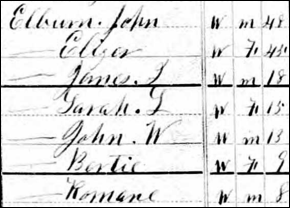 Elburn. John W m 48
— Ellzer W F 45
— James. L W m 18
— Sarah. L W F 15
— John. W W m 13
— Bertie W F 9
— Romane W m 8